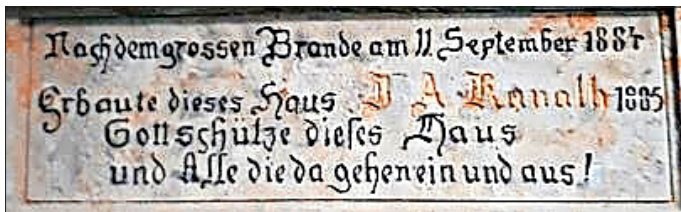 Nach dem grossen Brande am 11 September 1884
Erbaute dieses Haus J A Kanath 1885
Gott schütze dieses Haus
und Alle die da gehen ein und aus!